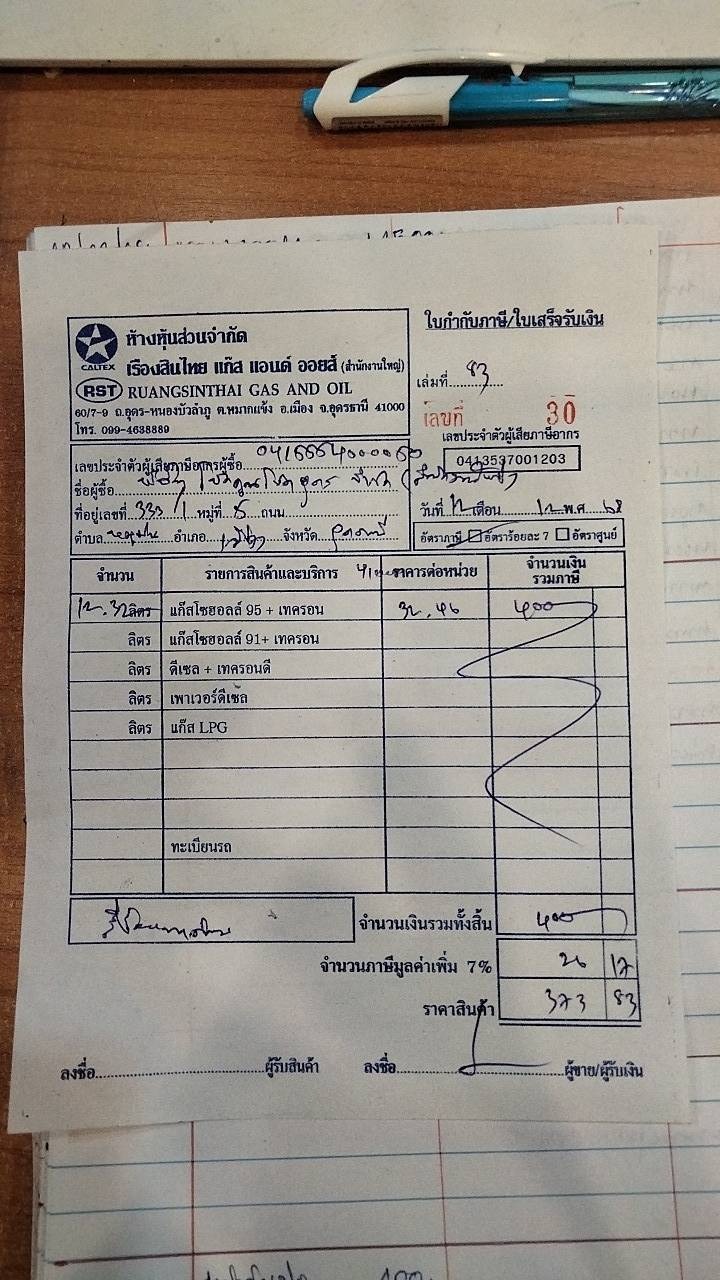 ใบกำกับภาษี/ใบเสร็จรับเงิน
ห้างหุ้นส่วนจำกัด
เรืองสินไทย แก๊ส แอนด์ ออยส์ (สำนักงานใหญ่)
CALTEX
RST RUANGSINTHAI GAS AND OIL
60/7-9 ถ.อุดร-หนองบัวลำภู ต.หมากแข้ง อ.เมือง จ.อุดรธานี 41000
โทร. 099-4638889
เล่มที่ 83
เลขที่ 30
เลขประจำตัวผู้เสียภาษีอากร
0413597001203
เลขประจำตัวผู้เสียภาษีอากรผู้ซื้อ
ชื่อผู้ซื้อ
ที่อยู่เลขที่ 333/1 หมู่ที่ 5 ถนน
ตำบล อำเภอ จังหวัด
วันที่ 12 เดือน 12 พ.ศ. 68
อัตราภาษี อัตราร้อยละ 7 อัตราศูนย์
จำนวน รายการสินค้าและบริการ ราคารต่อหน่วย จำนวนเงินรวมภาษี
12.32 ลิตร แก๊สโซฮอลล์ 95 + เทครอน 32.46 400
ลิตร แก๊สโซฮอลล์ 91+ เทครอน
ลิตร ดีเซล + เทครอนดี
ลิตร เพาเวอร์ดีเซล
ลิตร แก๊ส LPG
ทะเบียนรถ
สี่ร้อยบาทถ้วน จำนวนเงินรวมทั้งสิ้น 400
จำนวนภาษีมูลค่าเพิ่ม 7% 26 17
ราคาสินค้า 373 83
ลงชื่อ ผู้รับสินค้า ลงชื่อ ผู้ขาย/ผู้รับเงิน